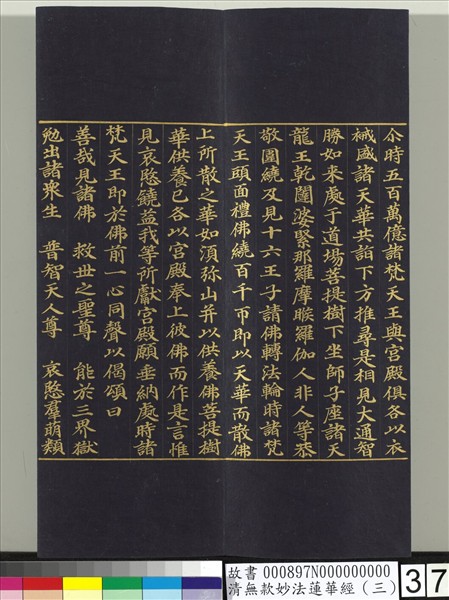 尒時五百萬億諸梵天王與宮殿俱各以衣
祴盛諸天華共詣下方推尋是相見大通智
勝如來處于道場菩提樹下坐師子座諸天
龍王乾闥婆緊那羅摩睺羅伽人非人等恭
敬圍繞及見十六王子請佛轉法輪時諸梵
天王頭面禮佛繞百千帀即以天華而散佛
上所散之華如湏弥山并以供養佛菩提樹
華供養已各以宮殿奉上彼佛而作是言惟
見哀愍饒益我等所獻宮殿願垂納處時諸
梵天王即於佛前一心同聲以偈頌曰
善哉見諸佛 救世之聖尊 能於三界獄
勉出諸眾生 普智天人尊 哀愍羣萌類
故書 000897N000000000
清無款妙法蓮華經(三)
37